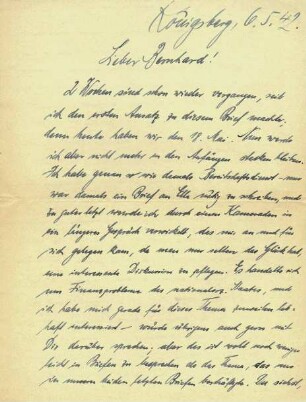 Königsberg, 6.5.42.
Lieber Bernhard!
2 Wochen sind schon wieder vergangen, seit
ich den ersten Ansatz zu diesem Brief machte,
denn heute haben wir den 17 Mai. Nun werde
ich aber nicht mehr in den Anfängen stecken bleiben.
Ich habe genau so wie damals Bereitschaftsdienst - nur
war damals ein Brief an Elle zu schreiben, und
zu guter letzt wurde ich durch einen Kameraden in
ein längeres Gespräch verwickelt, das mir an und für
sich gelegen kam, da man nur selten das Glück hat,
eine interessante Diskussion zu pflegen. Es handelte sich
um Finanzprobleme des nationalsoz. Staates, und
ich habe mich gerade für dieses Thema zuweilen leb-
haft interessiert - würde übrigens auch gern mit
Dir darüber sprechen; aber das ist wohl noch weniger
leicht in Briefen zu besprechen als das Thema, das uns
in unseren beiden letzten Briefen beschäftigte. Du siehst,